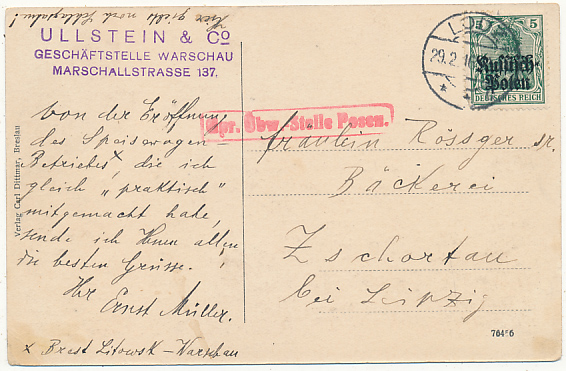 Hier giebt's noch Schlagsahne!
ULLSTEIN & Co
GESCHÄFTSTELLE WARSCHAU
MARSCHALLSTRASSE 137.
Von der Eröffnung
des Speisewagen-
Betriebes x, die ich
gleich „praktisch"
mitgemacht habe,
sende ich Ihnen allen
die besten Grüsse.
Ihr
Ernst Müller.
x Brest Litowsk - Warschau
Verlag Carl Dittmar, Breslau
Übw.-Stelle Posen.
29.2.
5
Russisch-
Polen
DEUTSCHES REICH
Fräulein Rössger sr.
Bäckerei
Zschortau
bei Leipzig